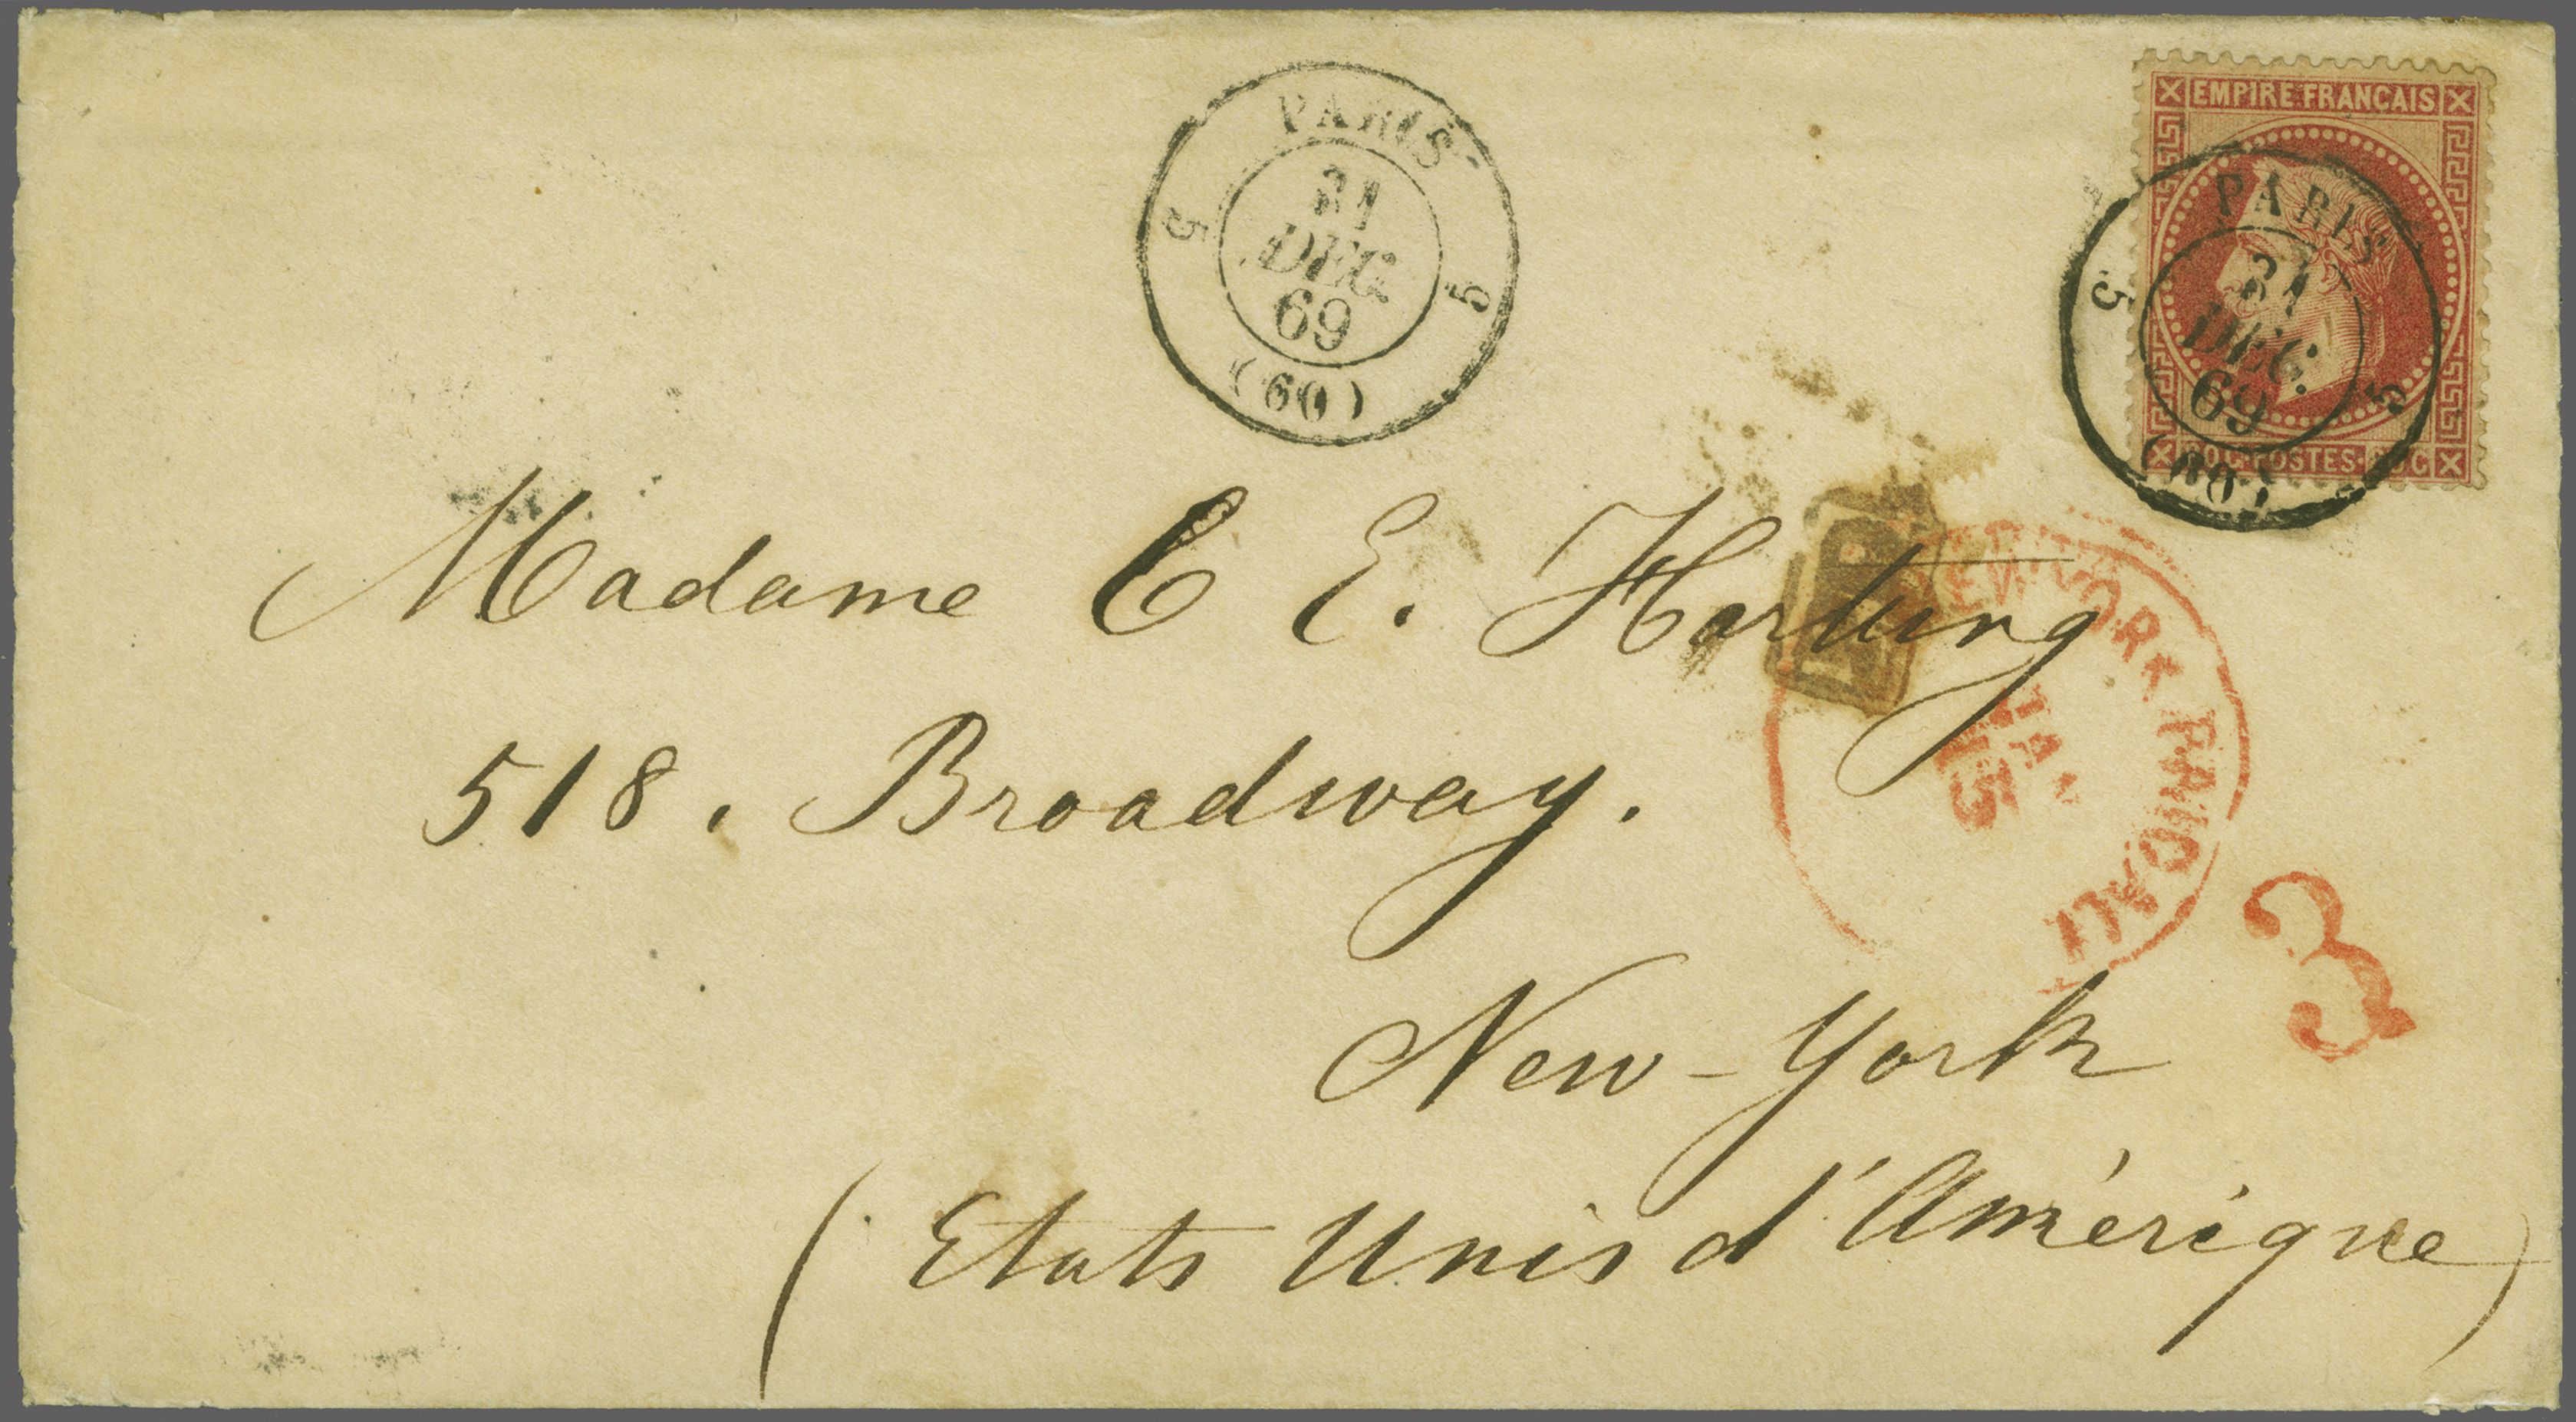 PARIS
5 5
31
DEC
69
(60)
EMPIRE FRANCAIS
PARIS
5 5
31
DEC.
69
(60)
80 C · POSTES · 80 C
Madame C E. Hartung
518. Broadway.
New-York
(Etats Unis d'Amérique)
NEW YORK PAID ALL
JAN
15
3